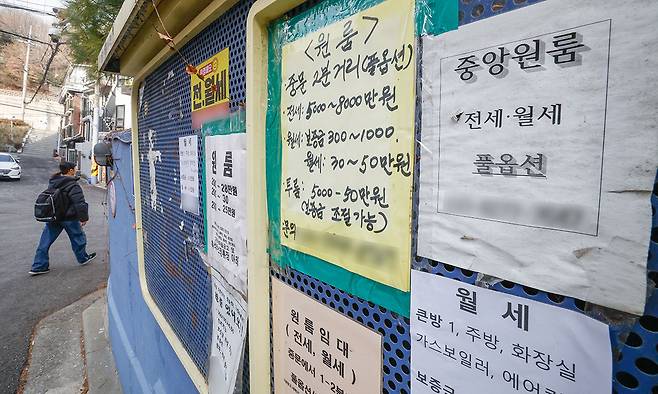 전.월세
월세
원룸
20 - 30
<원룸>
중문 2분거리(풀옵션)
전세: 5000~8000만원
월세: 보증금 300~1000.
월세: 30~50만원
투룸: 5000-50만원
(보증금 조절가능)
문의
원룸임대
(전세, 월세)
중문에서 1~2분
중앙원룸
전세·월세
풀옵션
월세
큰방 1, 주방, 화장실
가스보일러, 에어
보증금